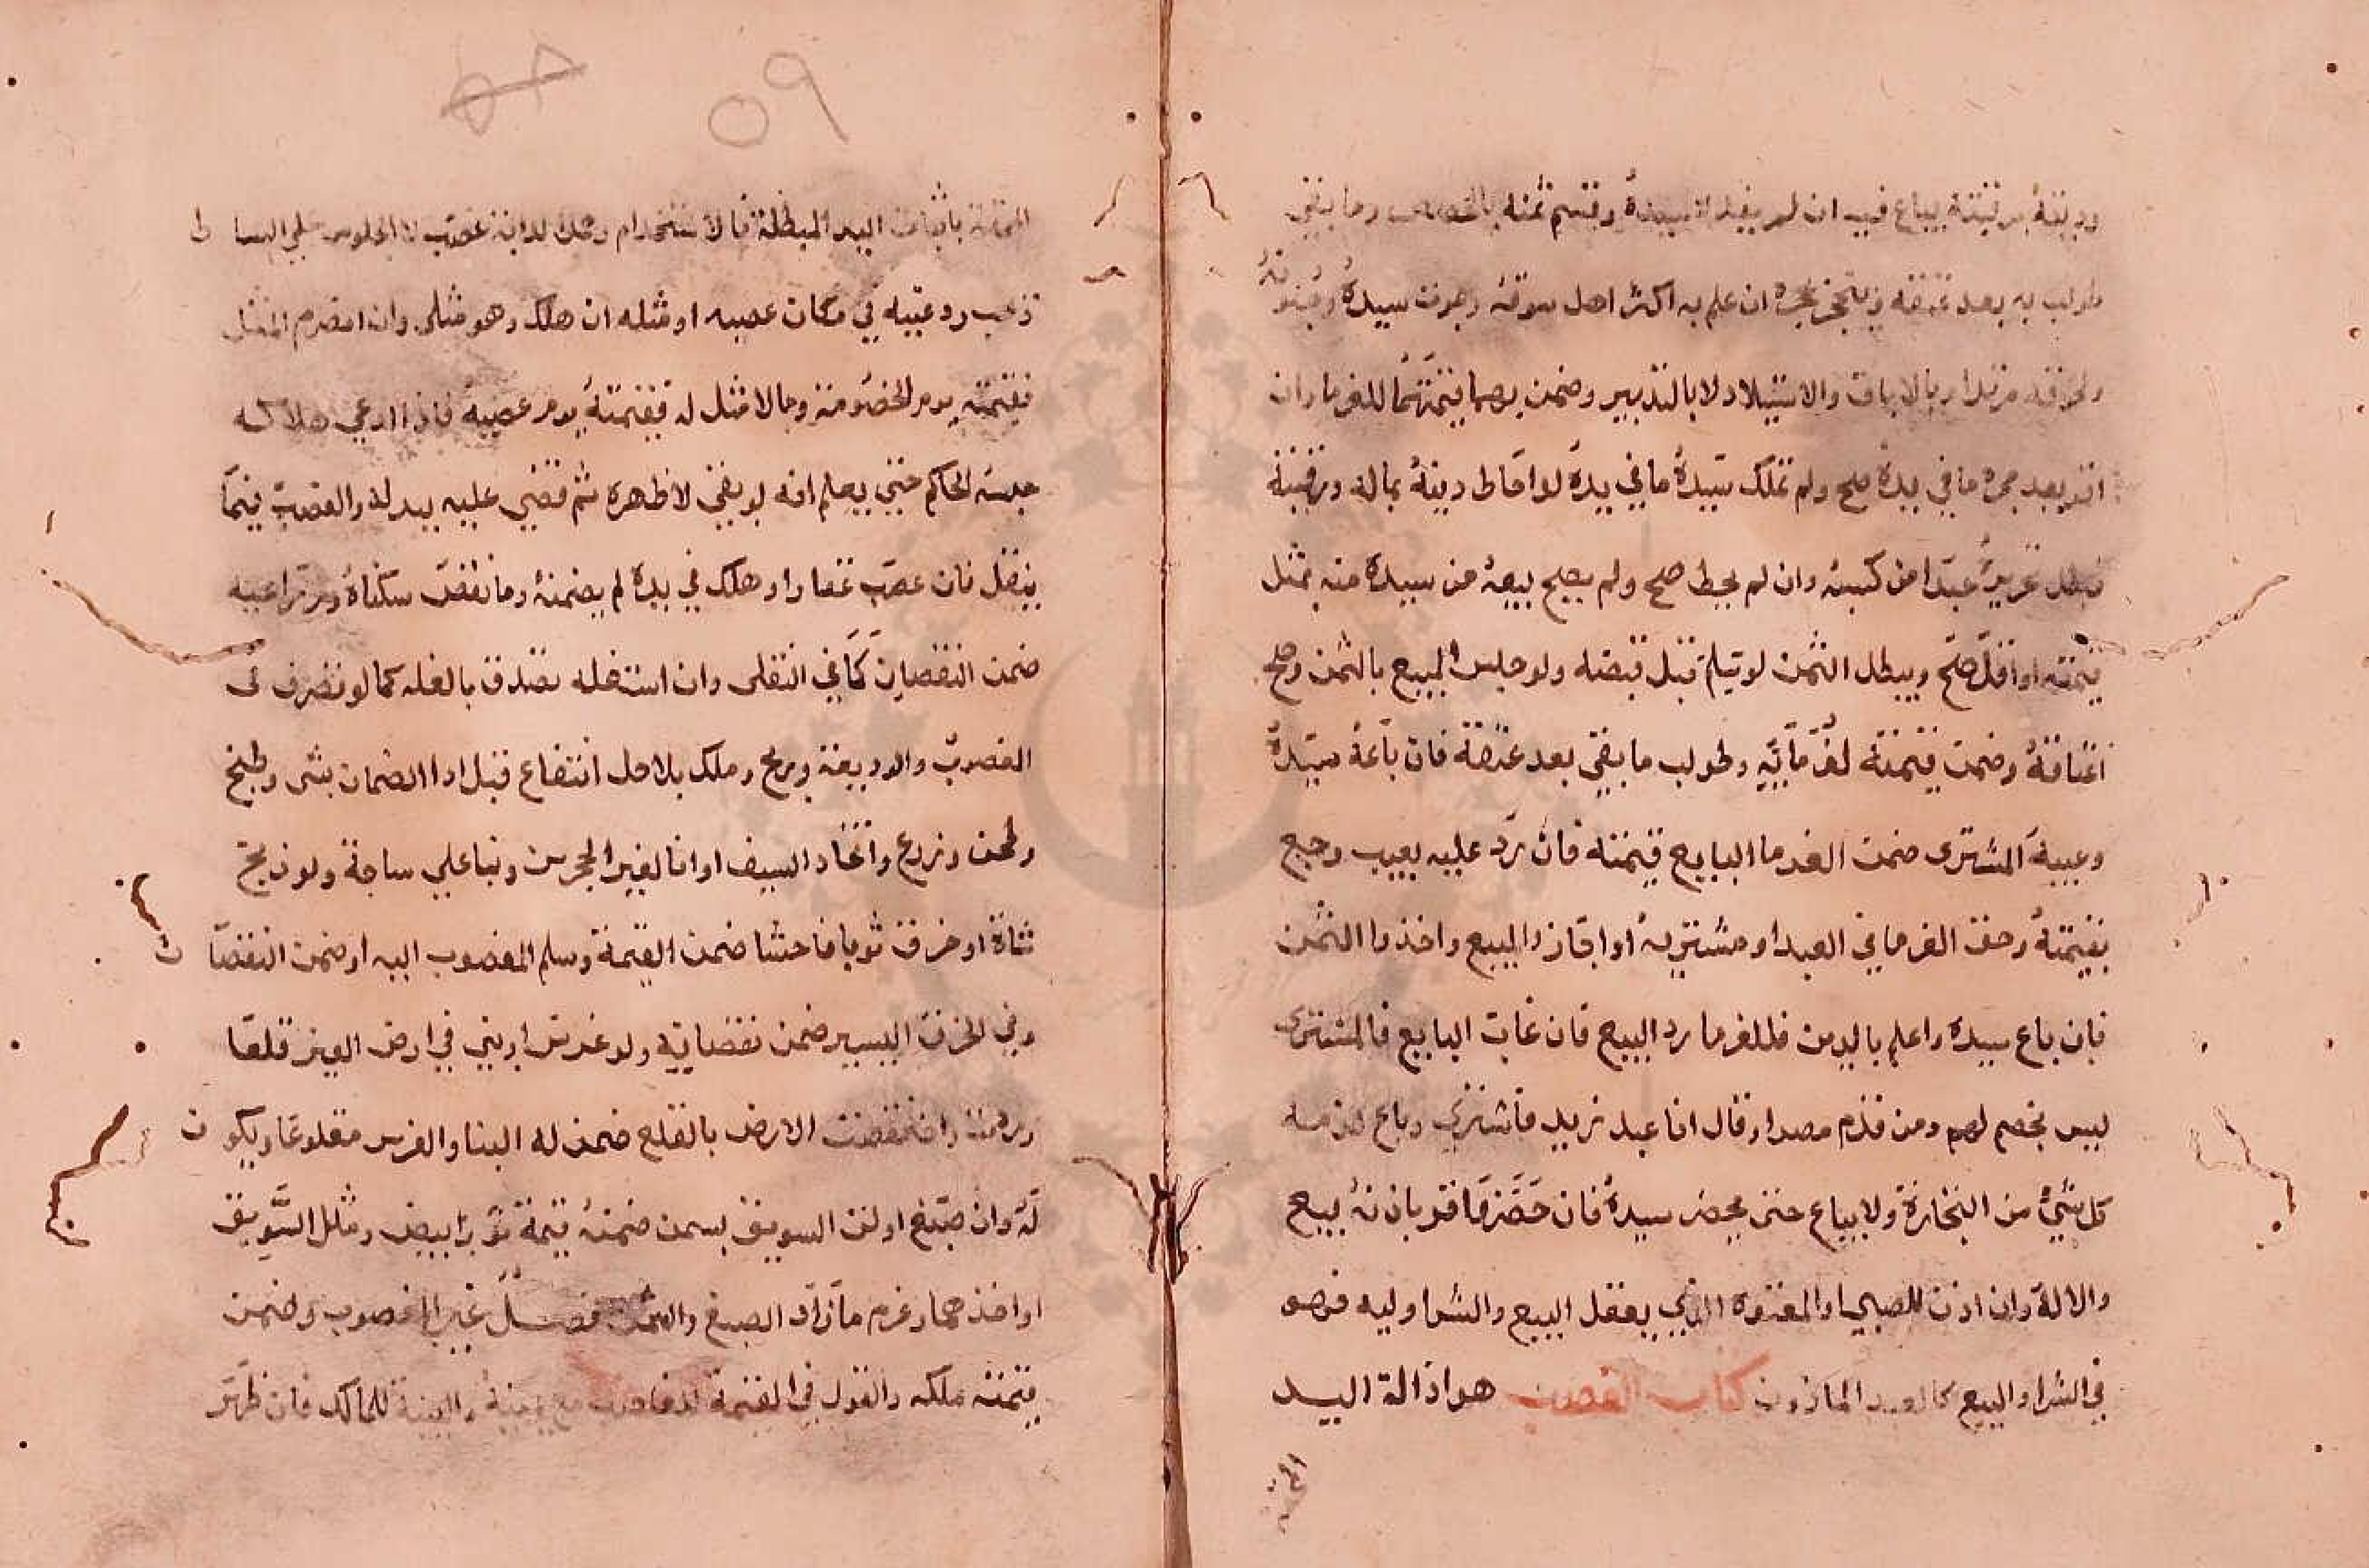 ودينه برقبته يباع فيه ان لم يفد سيده وقسم ثمنه بالحصص وما بقي
طولب به بعد عتقه ويتحجر بحجره ان علم به اكثر اهل سوقه وبموت سيده وجنونه
ولحوقه مرتدا وبالاباق والاستيلاد لا بالتدبير وضمن بهما قيمتهما للغرما وان
اقر بعد حجره ما في يده صح ولم تملك سيده ما في يده لو احاط دينه بماله ورقبته
فبطل تحريره عبدا من كسبه وان لم يحط صح ولم يصح بيعه من سيده منه بمثل
قيمته او اقل صح ويبطل الثمن لو سلم قبل قبضه ولو حبس المبيع بالثمن وصح
اعتاقه وضمن قيمته لغرمائه وطولب ما بقي بعد عتقه فان باعه سيده
وعيبه المشتري ضمن الغرما البايع قيمته فان رد عليه بعيب رجع
بقيمته وحق الغرما في العبد او مشتريه او اجاز والبيع واخذوا الثمن
فان باع سيده واعلم بالدين فللغرما رد البيع فان غاب البايع فالمشتري
ليس بخصم لهم ومن قدم مصرا وقال انا عبد زيد فاشتري وباع لزمه
كل شي من التجارة ولا يباع حتى يحضر سيده فان حضر فاقر باذنه بيع
والالة وان اذن للصبي او المعتوه الذي يعقل البيع والشرا وليه فهو
في الشرا والبيع كالعبد الماذون كتاب الغصب هو ازالة اليد
المحقة
٥٩
المحقة باثبات اليد المبطلة فالاستخدام وحمل لدابة غصب لا الجلوس علي البساط
ذهب رد عينه في مكان غصبه او مثله ان هلك وهو مثلي وان انصرم المثل
فقيمته يوم الخصومة وما لا مثل له فقيمته يوم غصبه فاذا ادعي هلاكه
حبسه الحاكم حتى يعلم انه لو بقي لاظهره ثم قضي عليه ببدله والغصب فيما
ينقل فان غصب عقارا وهلك في يده لم يضمنه وما نقص بسكناه وزراعته
ضمن النقصان كما في النقلي وان استغله تصدق بالغله كما لو تصرف في
المغصوب والوديعة وربح وملك بلا حل انتفاع قبل ادا الضمان بشي وطبخ
وطحن وزرع واتخاذ السيف او انا لغير الحجرين وبنا علي ساجة ولو ذبح
شاة او خرق ثوبا فاحشا ضمن القيمة وسلم المغصوب اليه او ضمن النقصان
وفي الخرق اليسير ضمن نقصانه ولو غرس او بني في ارض الغير قلعا
وردت وان نقصت الارض بالقلع ضمن له البنا والغرس مقلوعا ويكون
له وان صبغ او لت السويق بسمن ضمنه قيمة ثوب ابيض ومثل السويق
او اخذهما وغرم ما زاد الصبغ والسمن فصل غيب المغصوب وضمن
قيمته ملكه والقول في القيمة للغاصب مع يمينه والبينة للمالك فان ظهر